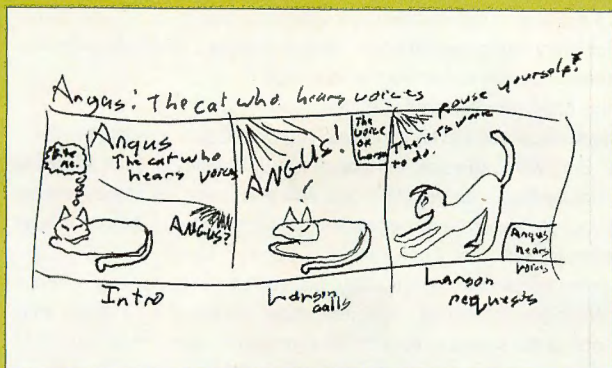 Angus: The cat who hears voices
Angus
The cat who
hears voices
ANGUS?
Intro
ANGUS!
The
voice
Larson
calls
Rouse yourself!
There is work
to do.
Angus
hears
voices
Larson
requests